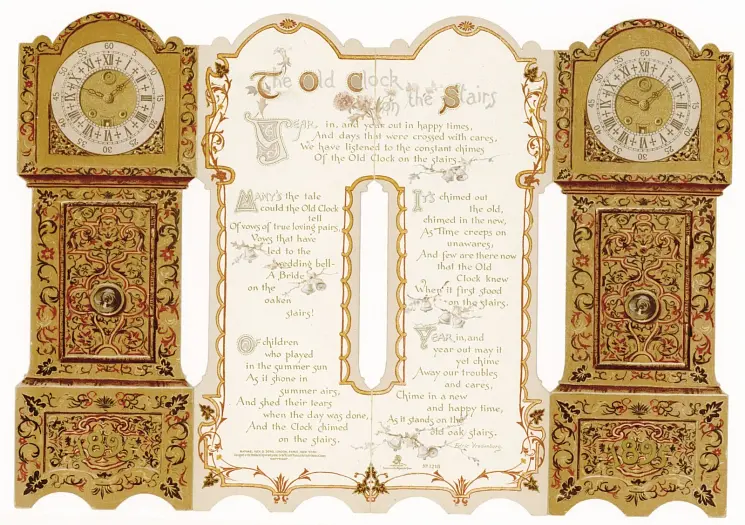 The Old Clock
on the Stairs
YEAR in, and year out in happy times,
And days that were crossed with cares,
We have listened to the constant chimes
Of the Old Clock on the stairs.
MANY'S the tale
could the Old Clock
tell
Of vows of true loving pairs,
Vows that have
led to the
wedding bell-
A Bride
on the
oaken
stairs!
O children
who played
in the summer sun
As it shone in
summer airs,
And shed their tears
when the day was done,
And the Clock chimed
on the stairs.
IT'S chimed out
the old,
chimed in the new,
As Time creeps on
unawares;
And few are there now
that the Old
Clock knew
When it first stood
on the stairs.
YEAR in, and
year out may it
yet chime
Away our troubles
and cares,
Chime in a new
and happy time,
As it stands on the
old oak stairs.
60 5 10 15 20 25 30 35 40 45 50 55
XII I II III IIII V VI VII VIII IX X XI
60 5 10 15 20 25 30 35 40 45 50 55
XII I II III IIII V VI VII VIII IX X XI